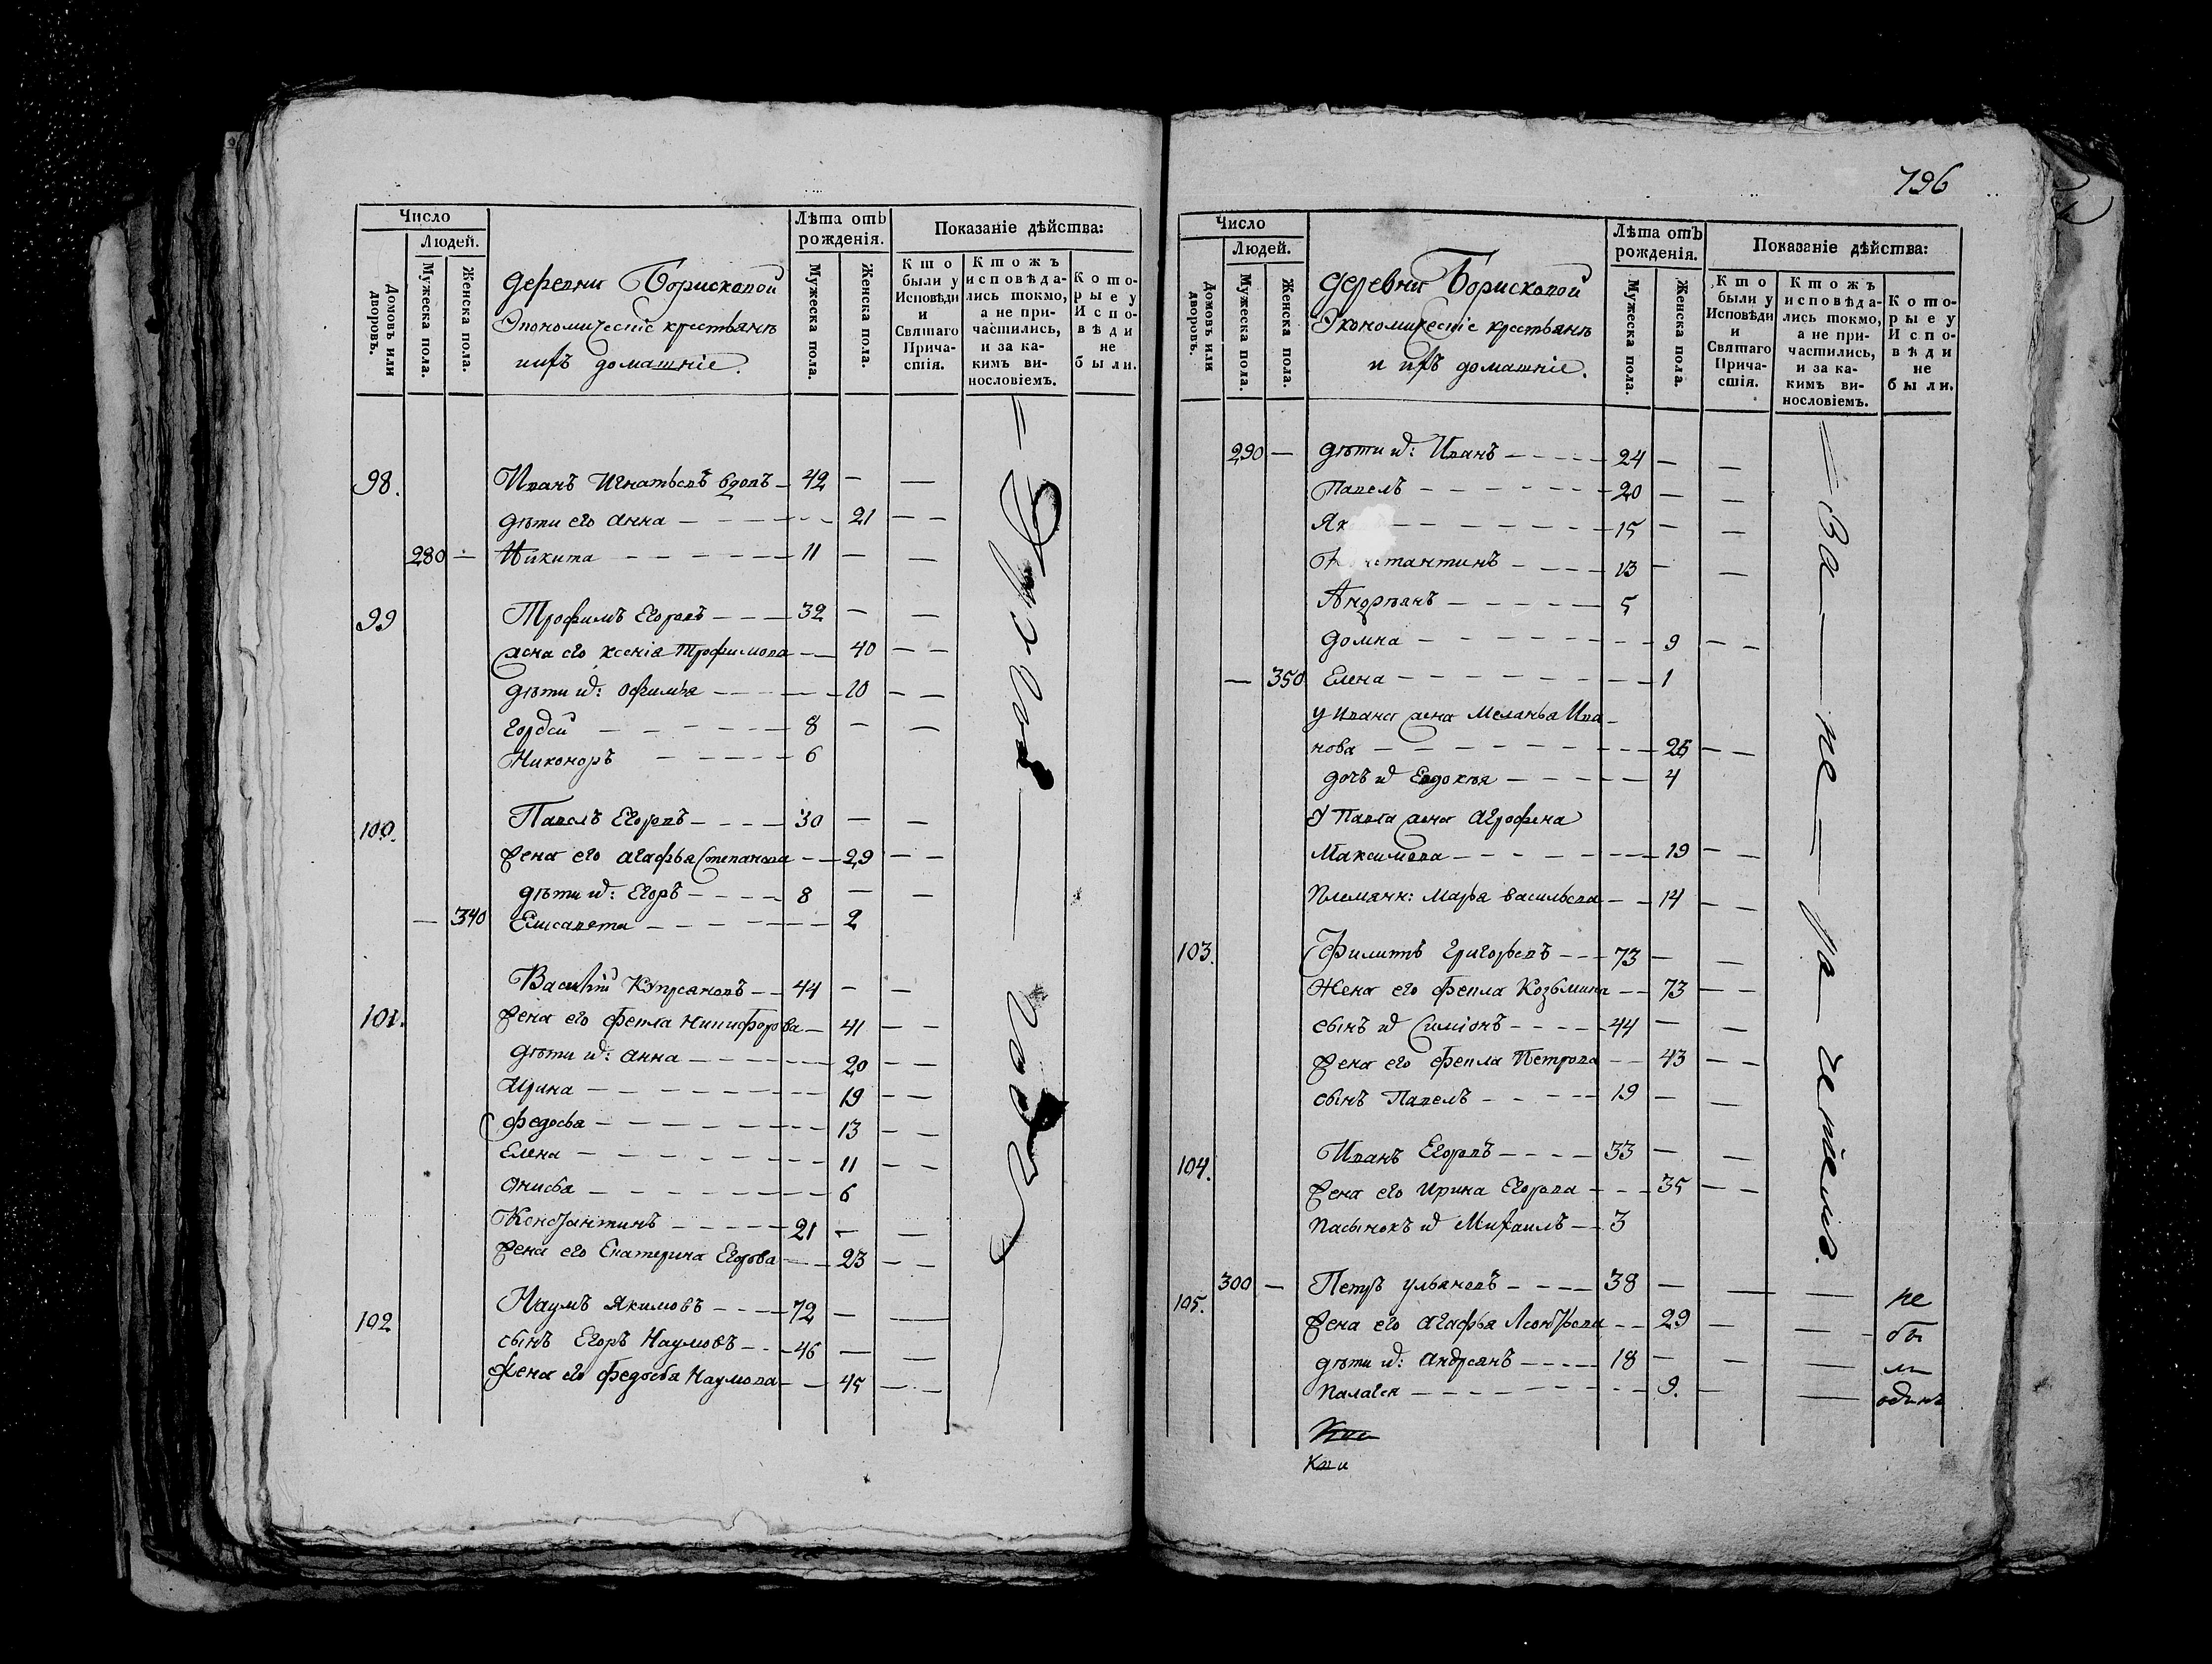 Число
Людей.
Домовъ или дворовъ.
Мужеска пола.
Женска пола.
деревни Борисковой
Экономическіе крестьянѣ
и ихъ домашніе.
Лѣта отъ рожденія.
Мужеска пола.
Женска пола.
Показаніе дѣйства:
Кто были у Исповѣди и Святаго Причастія.
Ктожъ исповѣдались токмо, а не причастились, и за какимъ винословіемъ.
Которые у Исповѣди не были.
98. Иванъ Игнатьевъ вдовъ — 42 — —
дѣти его Анна — 21 — —
280 — Никита — 11 — —
99 Трофимъ Егоровъ — 32 — —
жена его Ксенія Трофимова — 40 — —
дѣти их: Офимья — 10 — —
Гордей — 8 — —
Никоноръ — 6
100. Павелъ Егоровъ — 30 — —
жена его Агафья Степанова — 29 — —
дѣти их: Егоръ — 8 — —
— 340 Елисавета — 2
101. Василій Купреановъ — 44 — —
жена его Фекла Никифорова — 41 — —
дѣти их: Анна — 20 — —
Ирина — 19 — —
Федосья — 13 — —
Елена — 11 — —
Анисья — 6
Констянтинъ — 21 — —
жена его Екатерина Егорова — 23 — —
102 Наумъ Якимовъ — 72 — —
сынъ Егоръ Наумовъ — 46 — —
жена его Федосья Наумова — 45 — —
796
Число
Людей.
Домовъ или дворовъ.
Мужеска пола.
Женска пола.
деревни Борисковой
Экономическіе крестьянѣ
и ихъ домашніе.
Лѣта отъ рожденія.
Мужеска пола.
Женска пола.
Показаніе дѣйства:
Кто были у Исповѣди и Святаго Причастія.
Ктожъ исповѣдались токмо, а не причастились, и за какимъ винословіемъ.
Которые у Исповѣди не были.
290 — дѣти их: Иванъ — 24 — —
Павелъ — 20 — —
Як — 15 — —
К нстантинъ — 13 — —
Андрѣанъ — 5
Домна — 9 — —
— 350 Елена — 1
у Ивана жена Меланья Ива-
нова — 26 — —
дочь их Евдокѣя — 4
У Павла жена Агрофена
Максимова — 19 — —
Племянн: Марья Васильева — 14 — —
103. Филипъ Григорьевъ — 73 — —
Жена его Фекла Козьмина — 73 — —
сынъ их Симіонъ — 44 — —
жена его Фекла Петрова — 43 — —
сынъ Павелъ — 19 — —
104. Иванъ Егоровъ — 33 — —
жена его Ирина Егорова — 35 — —
пасынокъ их Михаилъ — 3
105. 300 — Петръ Ульяновъ — 38 — — — не
жена его Агафья Леонтьева — 29 — — бы
дѣти их: Андреянъ — 18 — — — ли
Палагея — 9. — —
За — не — ра